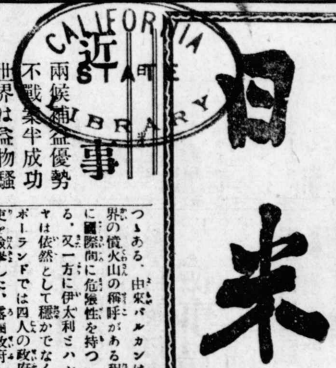 日来
CALIFORNIA
STATE
LIBRARY
近
事
兩候補益優勢
不戰案半成功
世界は益物騷
つゝある、由來バルカンは
界の噴火山の稱呼がある程
に國際間に危險性を持つ
る、又一方に伊太利ミハン
ヤは依然として穩かでなく
ポーランドでは四人の政府